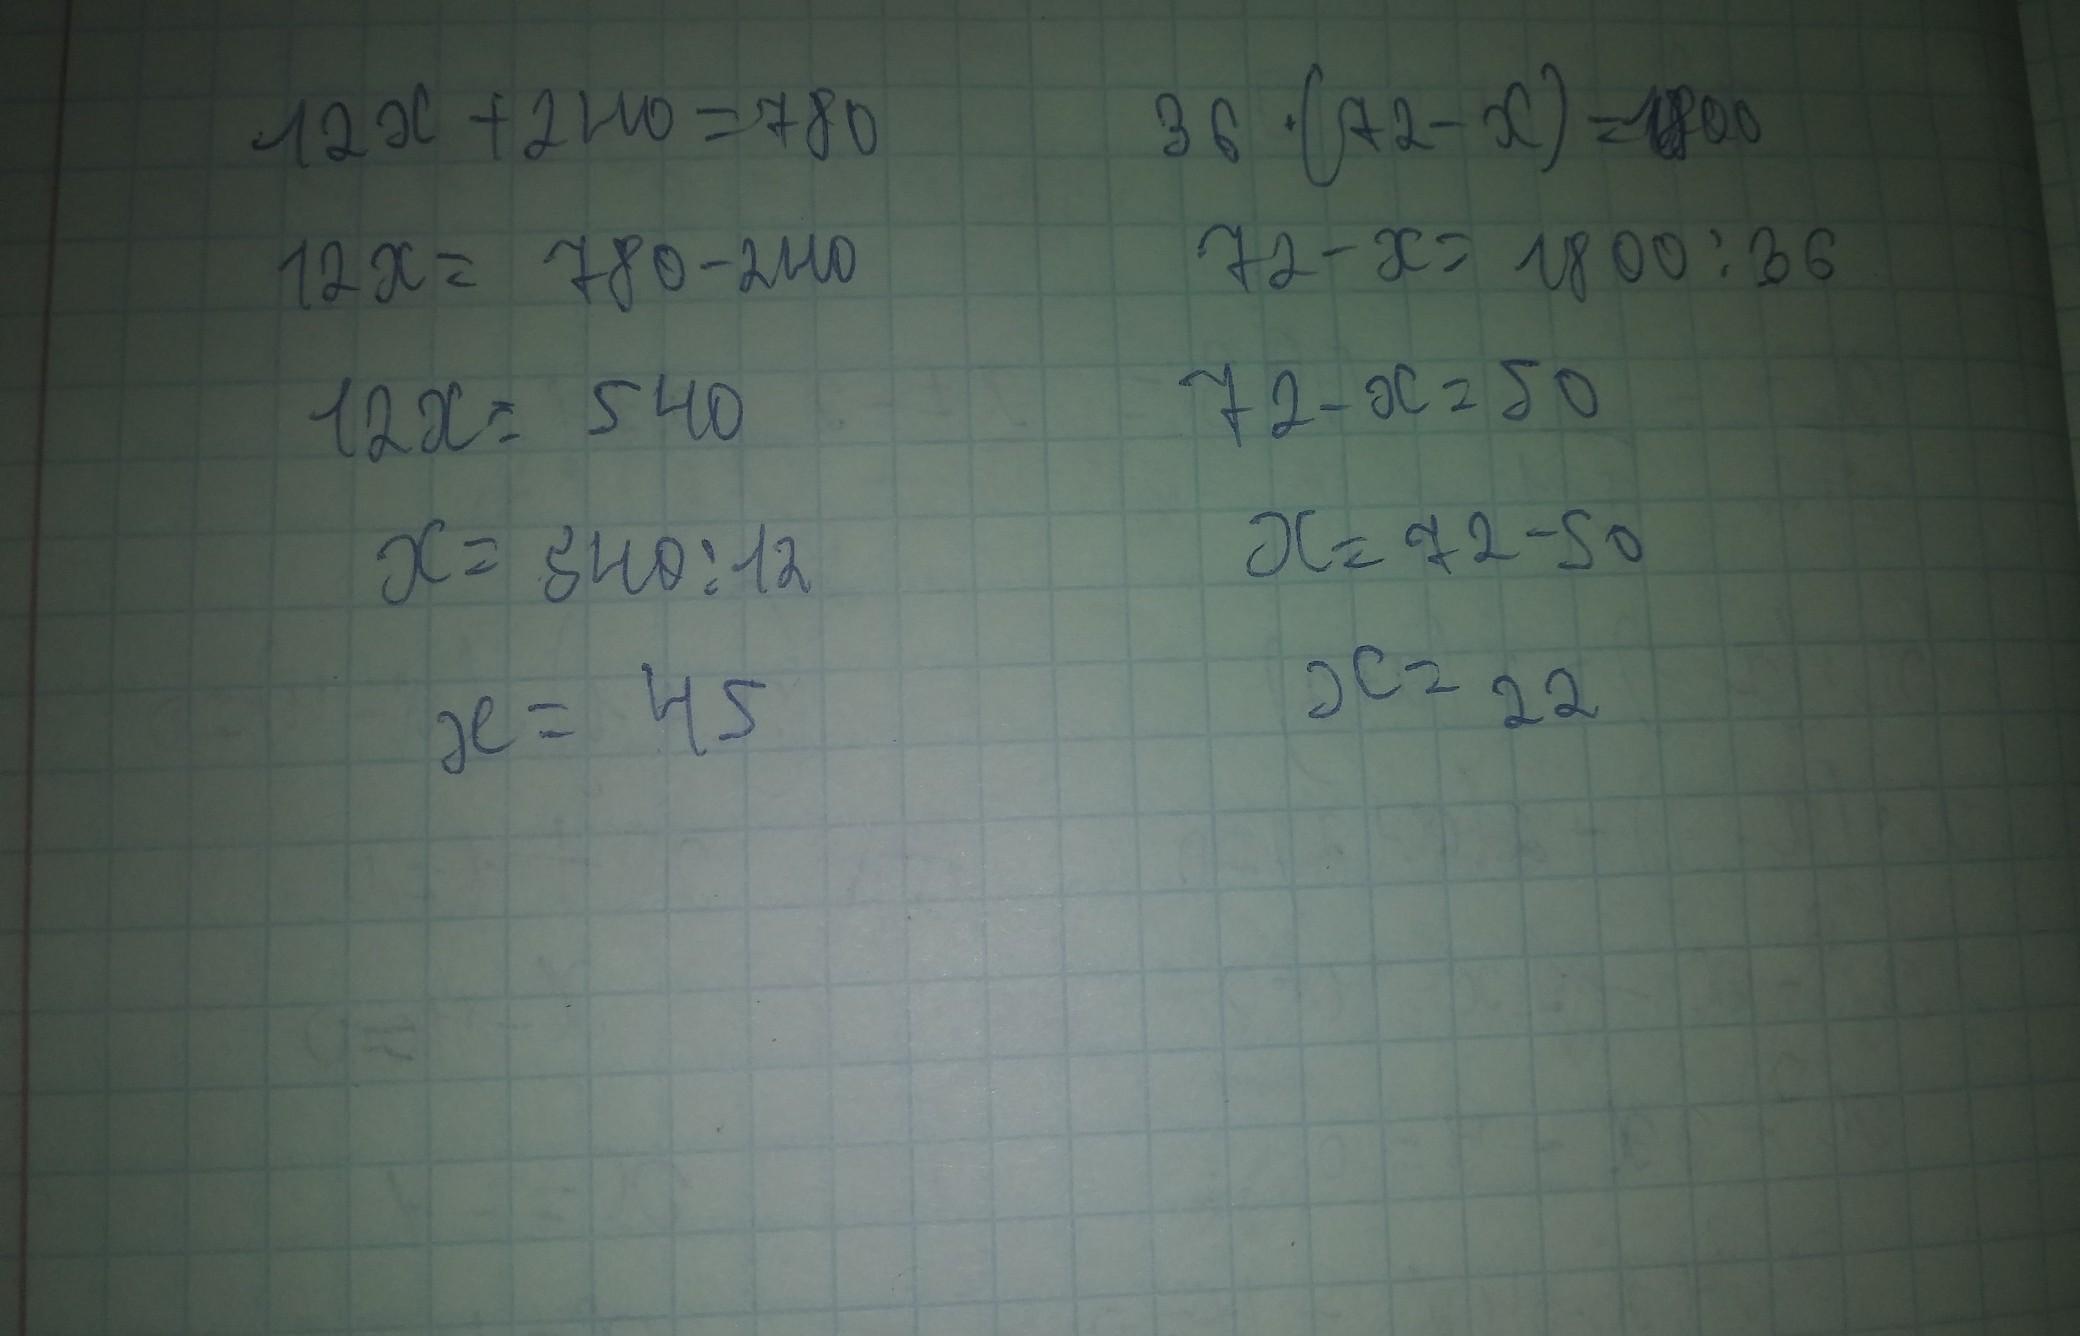 12x + 240 = 780
12x = 780 - 240
12x = 540
x = 540 : 12
x = 45
36 · (72 - x) = 1800
72 - x = 1800 : 36
72 - x = 50
x = 72 - 50
x = 22